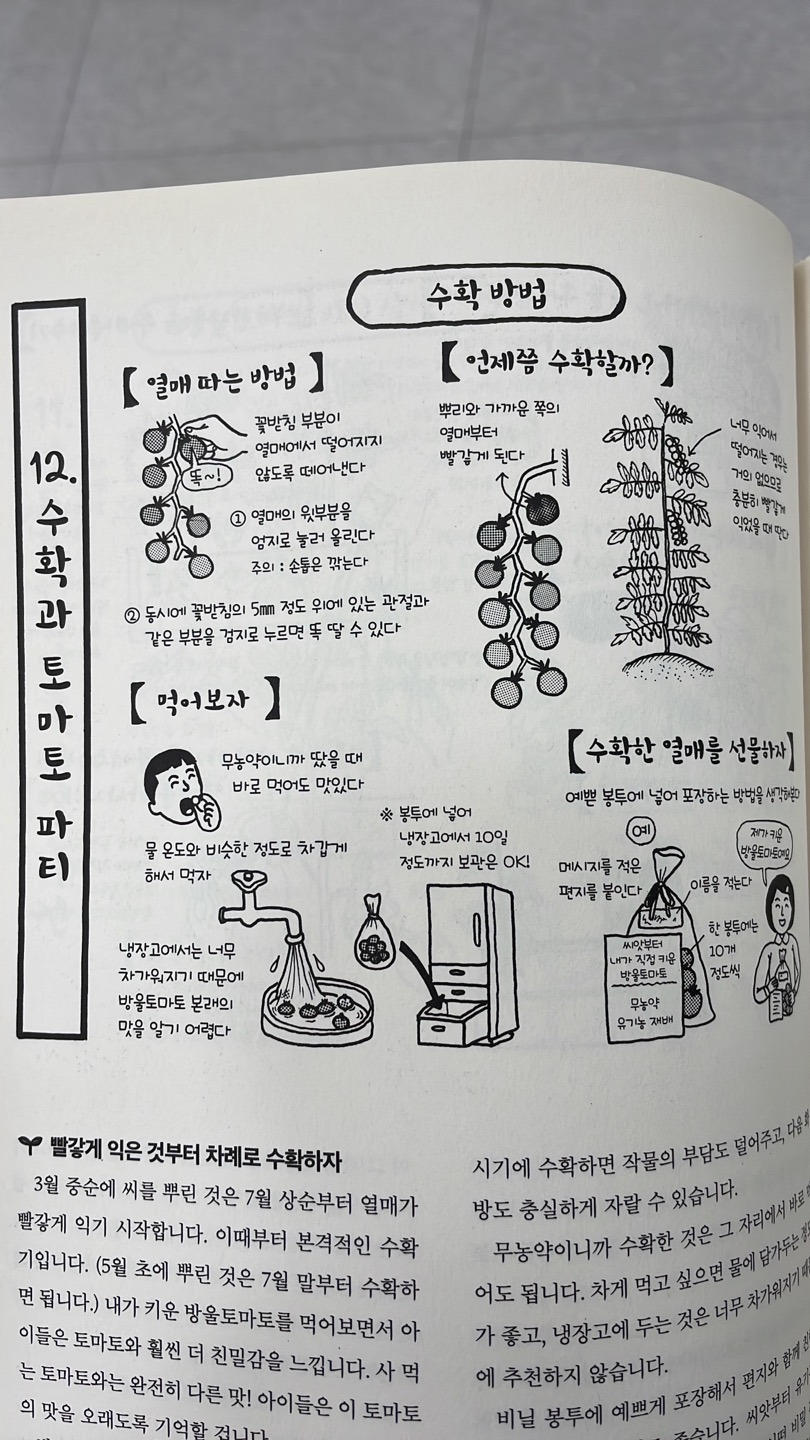 수확 방법
12. 수확과 토마토 파티
【열매 따는 방법】
꽃받침 부분이
열매에서 떨어지지
않도록 떼어낸다
똑~!
① 열매의 윗부분을
엄지로 눌러 올린다
주의 : 손톱은 깎는다
② 동시에 꽃받침의 5㎜ 정도 위에 있는 관절과
같은 부분을 검지로 누르면 똑 딸 수 있다
【언제쯤 수확할까?】
뿌리와 가까운 쪽의
열매부터
빨갛게 된다
너무 익어서
떨어지는 경우는
거의 없으므로
충분히 빨갛게
익었을 때 딴다
【먹어보자】
무농약이니까 땄을 때
바로 먹어도 맛있다
물 온도와 비슷한 정도로 차갑게
해서 먹자
냉장고에서는 너무
차가워지기 때문에
방울토마토 본래의
맛을 알기 어렵다
※ 봉투에 넣어
냉장고에서 10일
정도까지 보관은 OK!
【수확한 열매를 선물하자】
예쁜 봉투에 넣어 포장하는 방법을 생각해본다
예
메시지를 적은
편지를 붙인다
이름을 적는다
한 봉투에는
10개
정도씩
씨앗부터
내가 직접 키운
방울토마토
무농약
유기농 재배
제가 키운
방울토마토예요
빨갛게 익은 것부터 차례로 수확하자
3월 중순에 씨를 뿌린 것은 7월 상순부터 열매가
빨갛게 익기 시작합니다. 이때부터 본격적인 수확
기입니다. (5월 초에 뿌린 것은 7월 말부터 수확하
면 됩니다.) 내가 키운 방울토마토를 먹어보면서 아
이들은 토마토와 훨씬 더 친밀감을 느낍니다. 사 먹
는 토마토와는 완전히 다른 맛! 아이들은 이 토마토
의 맛을 오래도록 기억할 겁니다.
시기에 수확하면 작물의 부담도 덜어주고, 다음
방도 충실하게 자랄 수 있습니다.
무농약이니까 수확한 것은 그 자리에서 바로
어도 됩니다. 차게 먹고 싶으면 물에 담가두는
가 좋고, 냉장고에 두는 것은 너무 차가워지기
에 추천하지 않습니다.
비닐 봉투에 예쁘게 포장해서 편지와 함께
좋습니다. 씨앗부터